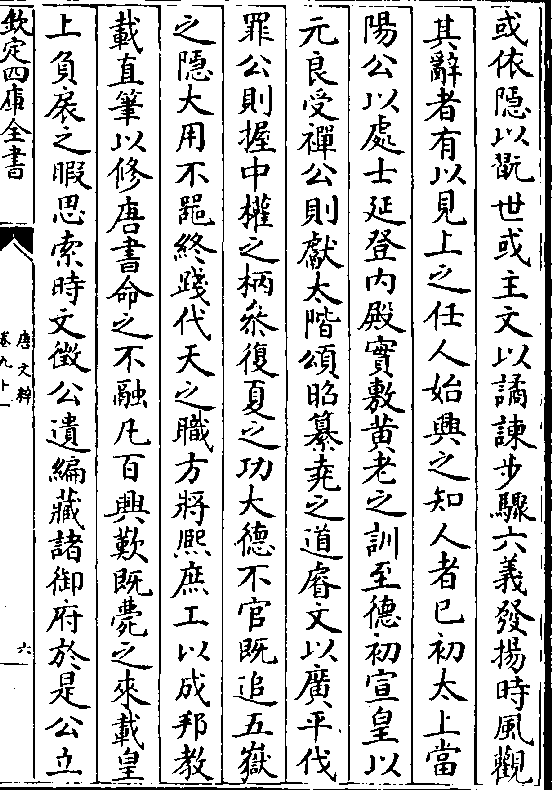 或依隱以翫世或主文以譎諫步驟六義發揚時風觀
其辭者有以見上之任人始興之知人者已初太上當
陽公以處士延登内殿實敷黄老之訓至德初宣皇以
元良受禪公則獻太階頌昭纂堯之道睿文以廣平伐
罪公則握中權之柄叅復夏之功大德不官既追五嶽
之隱大用不噐終踐代天之職方將熙庶工以成邦教
載直筆以修唐書命之不融凡百興歎既薨之來載皇
上負扆之暇思索時文徴公遺編藏諸御府於是公立
欽定四庫全書
唐文粹
卷九十一
六